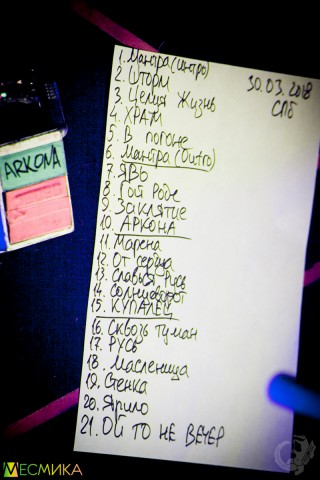 1. Мантра (интро)
2. Шторм
3. Целуя Жизнь
4. ХРАМ
5. В погоне
6. Мантра (Outro)
7. ЯВЬ
8. Гой Роде
9. Заклятие
10. АРКОНА
11. Марена
12. От сердца
13. Славься Русь
14. Солнцеворот
15. КУПАЛЕЦ
16. Сквозь туман
17. РУСЬ
18. Масленица
19. Стенка
20. Ярило
21. ОЙ ТО НЕ ВЕЧЕР
30.03.2018
СПб
ARKONA
МЕСМИКА